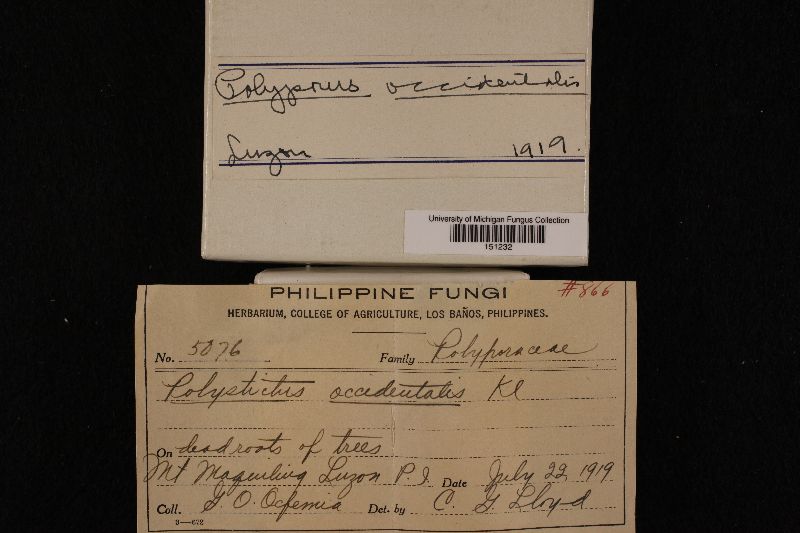 Polyporus occidentalis
Luzon 1919.
University of Michigan Fungus Collection
151232
PHILIPPINE FUNGI #866
HERBARIUM, COLLEGE OF AGRICULTURE, LOS BAÑOS, PHILIPPINES.
No. 5076 Family Polyporaceae
Polystictus occidentalis Kl
On dead roots of trees
Mt Maquiling Luzon P.I. Date July 22 1919
Coll. G. O. Ocfemia Det. by C. G. Lloyd
3—672